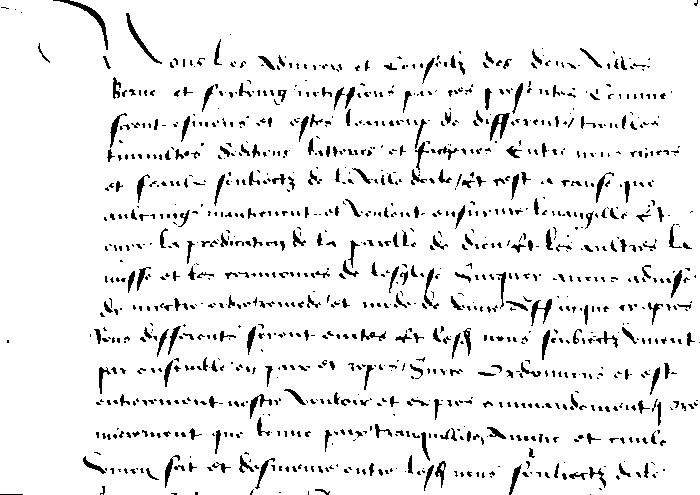 Nous les Advoiers et Conseilz des deux Villes
Berne et frybourg notiffions par ces presentes Comme
soient esmeus et estes beaucoup de differents, troubles
tumultes seditions batteries et facheries Entre nous chiers
et feaulx soubiectz de la Ville de Et cest a cause que
aulcungs maintiennent et Veulent ensuivre levangille Et
ouyr la predication de la parolle de dieu, Et les aultres la
messe et les ceremonies de leglise Surquoy avons advise
de mectre ordre, remede, et mode de Vivre, Affinque cy apres
tous differents soient evites Et lesd nous soubiectz Vivent
par ensemble en paix et repos, Surce Ordonnons et est
entierement nostre Vouloir et expres commandement,
mierement que bonne paix, tranquillite, Amour et civile
Union soit et demeure entre lesd nous soubiectz de